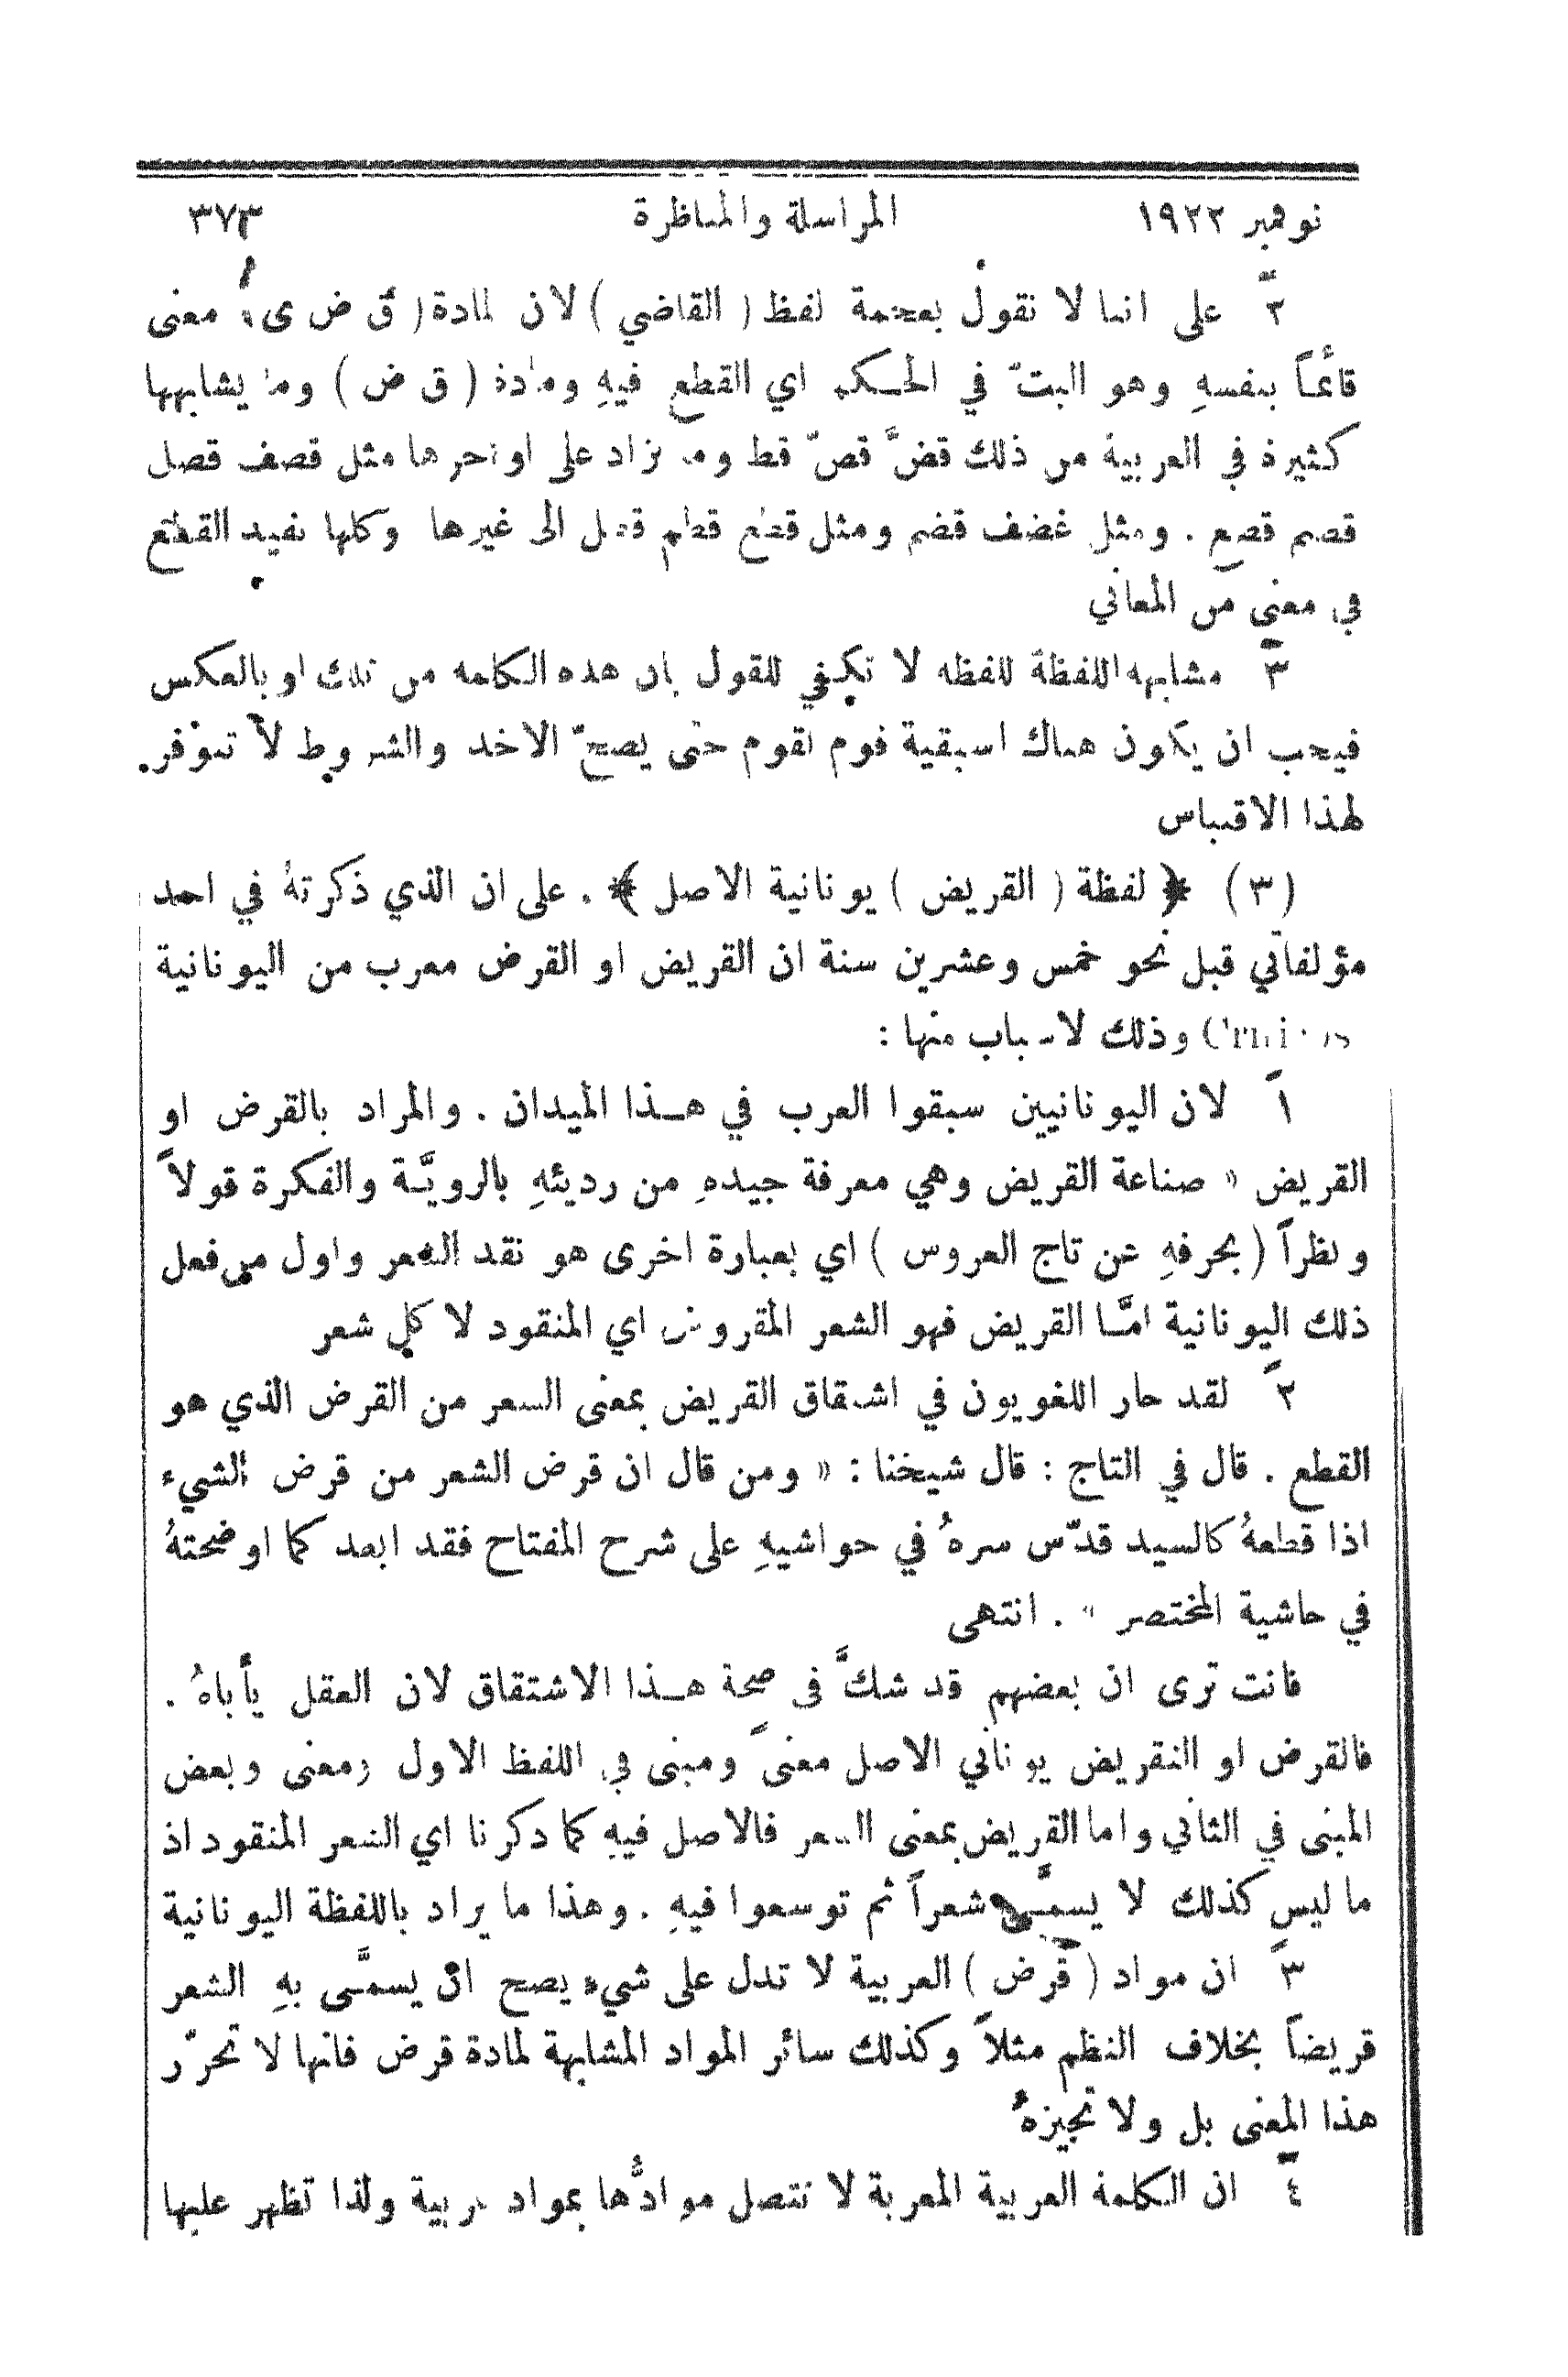 نوفمبر ١٩٢٢ المراسلة والمناظرة ٣٧٣
٢ً على اننا لا نقول بعجمة لفظ ( القاضي ) لان لمادة ( ق ض ى ) معنى
قائماً بنفسهِ وهو البتّ في الحكم اي القطع فيهِ ومادة ( ق ض ) وما يشابهها
كثيرة في العربية من ذلك قضَّ قصّ قط وما يزاد على اواخرها مثل قصف قصل
قصم قصع . ومثل غضف قضم ومثل قطع قطم قطل الى غيرها وكلها تفيد القطع
في معنى من المعاني
٣ً مشابهه اللفظة للفظه لا تكفي للقول بان هذه الكلمه من تلك او بالعكس
فيجب ان يكون هناك اسبقية قوم لقوم حتى يصحّ الاخذ والشروط لا تتوفر
لهذا الاقتباس
(٣) ﴿ لفظة ( القريض ) يونانية الاصل ﴾ . على ان الذي ذكرتهُ في احد
مؤلفاتي قبل نحو خمس وعشرين سنة ان القريض او القرض معرب من اليونانية
وذلك لاسباب منها :
١ً لان اليونانيين سبقوا العرب في هـذا الميدان . والمراد بالقرض او
القريض « صناعة القريض وهي معرفة جيدهِ من رديئهِ بالرويَّـة والفكرة قولاً
ونظراً ( بحرفهِ عن تاج العروس ) اي بعبارة اخرى هو نقد الشعر واول من فعل
ذلك اليونانية امَّـا القريض فهو الشعر المقروض اي المنقود لا كل شعر
٢ً لقد حار اللغويون في اشتقاق القريض بمعنى الشعر من القرض الذي هو
القطع . قال في التاج : قال شيخنا : « ومن قال ان قرض الشعر من قرض الشيء
اذا قطعهُ كالسيد قدّس سرهُ في حواشيهِ على شرح المفتاح فقد ابعد كما اوضحتهُ
في حاشية المختصر » . انتهى
فانت ترى ان بعضهم قد شكَّ في صحة هـذا الاشتقاق لان العقل يأباهُ .
فالقرض او التقريض يوناني الاصل معنىً ومبنى في اللفظ الاول ومعنى وبعض
المبنى في الثاني واما القريض بمعنى الشعر فالاصل فيهِ كما ذكرنا اي الشعر المنقود اذ
ما ليس كذلك لا يسمَّـى شعراً ثم توسعوا فيهِ . وهذا ما يراد باللفظة اليونانية
٣ً ان مواد ( قرض ) العربية لا تدل على شيءٍ يصح ان يسمَّـى بهِ الشعر
قريضاً بخلاف النظم مثلاً وكذلك سائر المواد المشابهة لمادة قرض فانها لا تحرّر
هذا المعنى بل ولا تجيزهُ
٤ً ان الكلمة العربية المعربة لا تتصل موادُّها بمواد عربية ولذا تظهر عليها